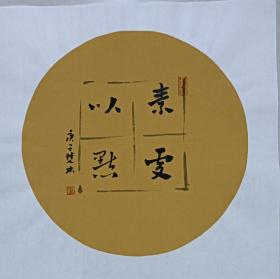 素處
以默
庚子